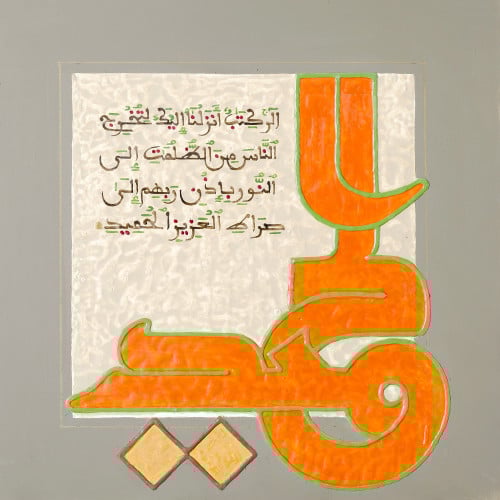 الر كتب أنزلناه إليك لتخرج
الناس من الظلمت إلى
النور بإذن ربهم إلى
صراط العزيز الحميد
الحميد